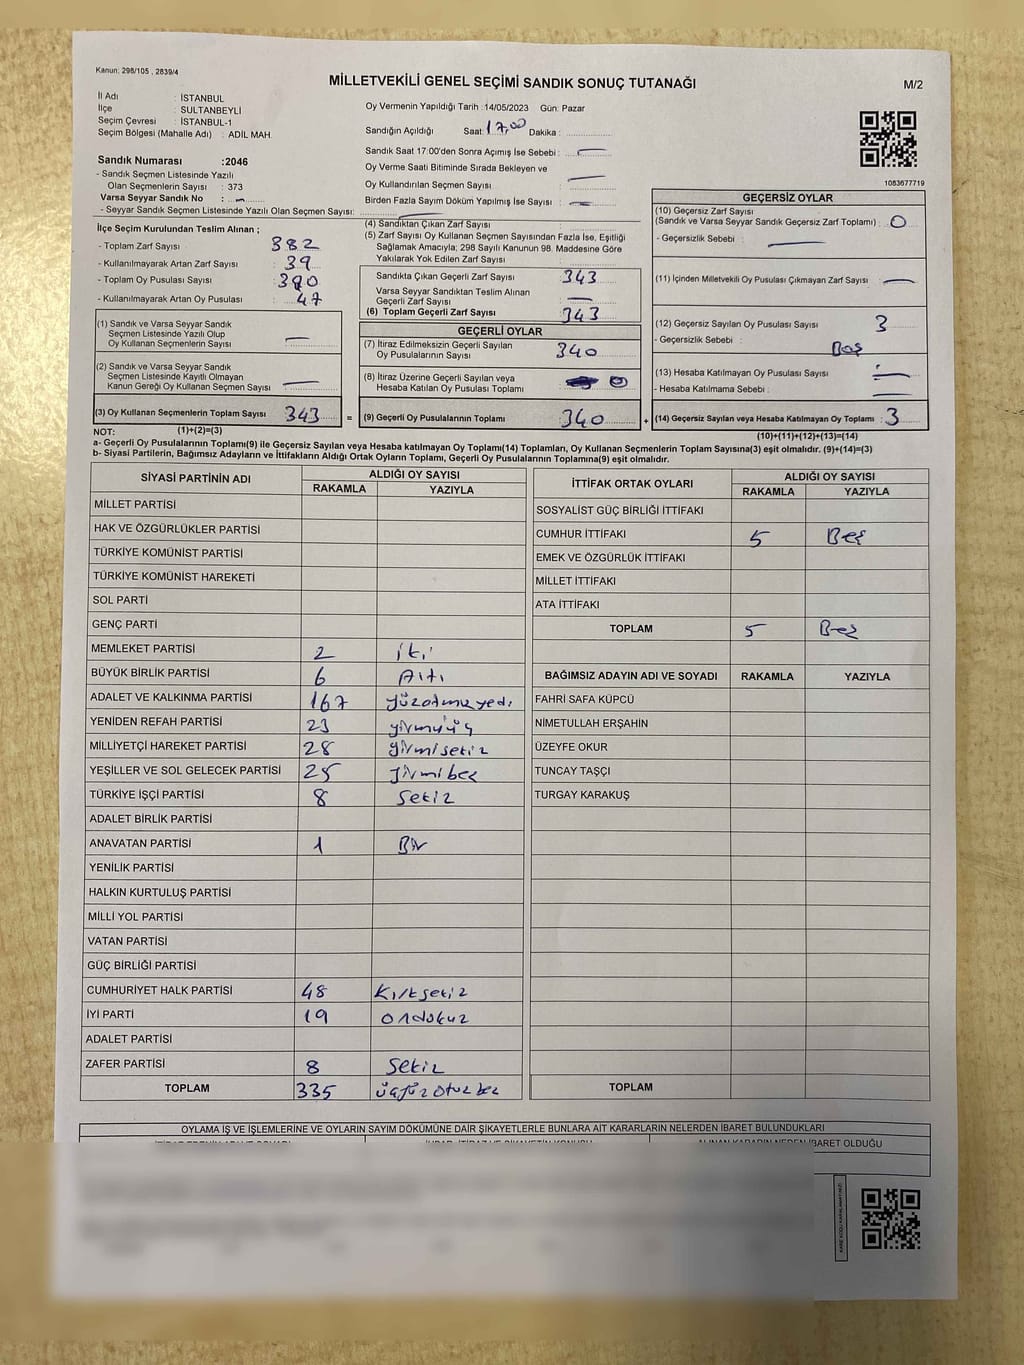 Kanun: 298/105 , 2839/4
MİLLETVEKİLİ GENEL SEÇİMİ SANDIK SONUÇ TUTANAĞI
M/2
İl Adı : İSTANBUL
İlçe : SULTANBEYLİ
Seçim Çevresi : İSTANBUL-1
Seçim Bölgesi (Mahalle Adı) : ADİL MAH.
Oy Vermenin Yapıldığı Tarih : 14/05/2023 Gün: Pazar
Sandığın Açıldığı Saat: 17,00 Dakika :
Sandık Saat 17:00'den Sonra Açımış İse Sebebi : —
Oy Verme Saati Bitiminde Sırada Bekleyen ve
Oy Kullandırılan Seçmen Sayısı : —
Birden Fazla Sayım Döküm Yapılmış İse Sayısı : —
Sandık Numarası :2046
- Sandık Seçmen Listesinde Yazılı
Olan Seçmenlerin Sayısı : 373
Varsa Seyyar Sandık No : —
- Seyyar Sandık Seçmen Listesinde Yazılı Olan Seçmen Sayısı: —
1083677719
İlçe Seçim Kurulundan Teslim Alınan ;
- Toplam Zarf Sayısı : 382
- Kullanılmayarak Artan Zarf Sayısı : 39
- Toplam Oy Pusulası Sayısı : 390
- Kullanılmayarak Artan Oy Pusulası : 47
(1) Sandık ve Varsa Seyyar Sandık
Seçmen Listesinde Yazılı Olup
Oy Kullanan Seçmenlerin Sayısı : —
(2) Sandık ve Varsa Seyyar Sandık
Seçmen Listesinde Kayıtlı Olmayan
Kanun Gereği Oy Kullanan Seçmen Sayısı : —
(3) Oy Kullanan Seçmenlerin Toplam Sayısı : 343 =
(1)+(2)=(3)
(4) Sandıktan Çıkan Zarf Sayısı :
(5) Zarf Sayısı Oy Kullanan Seçmen Sayısından Fazla İse, Eşitliği
Sağlamak Amacıyla; 298 Sayılı Kanunun 98. Maddesine Göre
Yakılarak Yok Edilen Zarf Sayısı :
Sandıkta Çıkan Geçerli Zarf Sayısı : 343
Varsa Seyyar Sandıktan Teslim Alınan
Geçerli Zarf Sayısı : —
(6) Toplam Geçerli Zarf Sayısı : 343
GEÇERLİ OYLAR
(7) İtiraz Edilmeksizin Geçerli Sayılan
Oy Pusulalarının Sayısı : 340
(8) İtiraz Üzerine Geçerli Sayılan veya
Hesaba Katılan Oy Pusulası Toplamı : 0
(9) Geçerli Oy Pusulalarının Toplamı : 340 +
GEÇERSİZ OYLAR
(10) Geçersiz Zarf Sayısı
(Sandık ve Varsa Seyyar Sandık Geçersiz Zarf Toplamı) : 0
- Geçersizlik Sebebi : —
(11) İçinden Milletvekili Oy Pusulası Çıkmayan Zarf Sayısı : —
(12) Geçersiz Sayılan Oy Pusulası Sayısı : 3
- Geçersizlik Sebebi : Boş
(13) Hesaba Katılmayan Oy Pusulası Sayısı : —
- Hesaba Katılmama Sebebi : —
(14) Geçersiz Sayılan veya Hesaba Katılmayan Oy Toplamı : 3
(10)+(11)+(12)+(13)=(14)
NOT:
a- Geçerli Oy Pusulalarının Toplamı(9) ile Geçersiz Sayılan veya Hesaba katılmayan Oy Toplamı(14) Toplamları, Oy Kullanan Seçmenlerin Toplam Sayısına(3) eşit olmalıdır. (9)+(14)=(3)
b- Siyasi Partilerin, Bağımsız Adayların ve İttifakların Aldığı Ortak Oyların Toplamı, Geçerli Oy Pusulalarının Toplamına(9) eşit olmalıdır.
SİYASİ PARTİNİN ADI ALDIĞI OY SAYISI
RAKAMLA YAZIYLA
MİLLET PARTİSİ
HAK VE ÖZGÜRLÜKLER PARTİSİ
TÜRKİYE KOMÜNİST PARTİSİ
TÜRKİYE KOMÜNİST HAREKETİ
SOL PARTİ
GENÇ PARTİ
MEMLEKET PARTİSİ 2 iki
BÜYÜK BİRLİK PARTİSİ 6 Altı
ADALET VE KALKINMA PARTİSİ 167 yüzatmışyedi
YENİDEN REFAH PARTİSİ 23 yirmiüç
MİLLİYETÇİ HAREKET PARTİSİ 28 yirmisekiz
YEŞİLLER VE SOL GELECEK PARTİSİ 25 yirmibeş
TÜRKİYE İŞÇİ PARTİSİ 8 Sekiz
ADALET BİRLİK PARTİSİ
ANAVATAN PARTİSİ 1 Bir
YENİLİK PARTİSİ
HALKIN KURTULUŞ PARTİSİ
MİLLİ YOL PARTİSİ
VATAN PARTİSİ
GÜÇ BİRLİĞİ PARTİSİ
CUMHURİYET HALK PARTİSİ 48 Kırksekiz
İYİ PARTİ 19 Ondokuz
ADALET PARTİSİ
ZAFER PARTİSİ 8 Sekiz
TOPLAM 335 üçyüzotuzbeş
İTTİFAK ORTAK OYLARI ALDIĞI OY SAYISI
RAKAMLA YAZIYLA
SOSYALİST GÜÇ BİRLİĞİ İTTİFAKI
CUMHUR İTTİFAKI 5 Beş
EMEK VE ÖZGÜRLÜK İTTİFAKI
MİLLET İTTİFAKI
ATA İTTİFAKI
TOPLAM 5 Beş
BAĞIMSIZ ADAYIN ADI VE SOYADI RAKAMLA YAZIYLA
FAHRİ SAFA KÜPCÜ
NİMETULLAH ERŞAHİN
ÜZEYFE OKUR
TUNCAY TAŞÇI
TURGAY KARAKUŞ
TOPLAM
OYLAMA İŞ VE İŞLEMLERİNE VE OYLARIN SAYIM DÖKÜMÜNE DAİR ŞİKAYETLERLE BUNLARA AİT KARARLARIN NELERDEN İBARET BULUNDUKLARI
ALINAN KARARIN NEDEN İBARET OLDUĞU